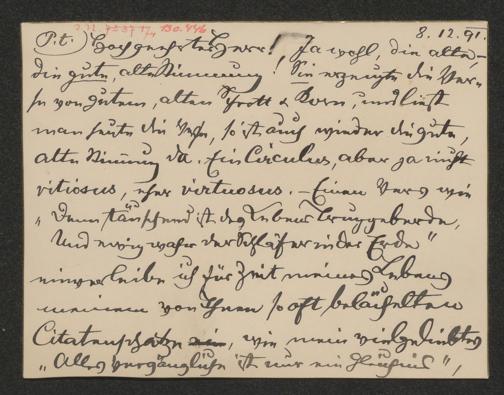 8.12.91.
P.t.) Hochgeehrter Herr! Jawohl, die alte –
die gute, alte Stimmung! Sie erzeugte die Ver-
se von gutem, alten Schrott & Korn, und liest
man heute die Verse, so ist auch wieder die gute,
alte Stimmung da. Ein Circulus, aber ja nicht
vitiosus, eher virtuosus. – Einen Vers wie
„Denn täuschend ist des Lebens Truggeberde,
Und ewig wahr der Schläfer in der Erde“
einverleibe ich für Zeit meines Lebens
meinem von Ihnen so oft belächelten
Citatenschatze, wie mein vielgeliebtes
„Alles Vergängliche ist nur ein Gleichnis“,